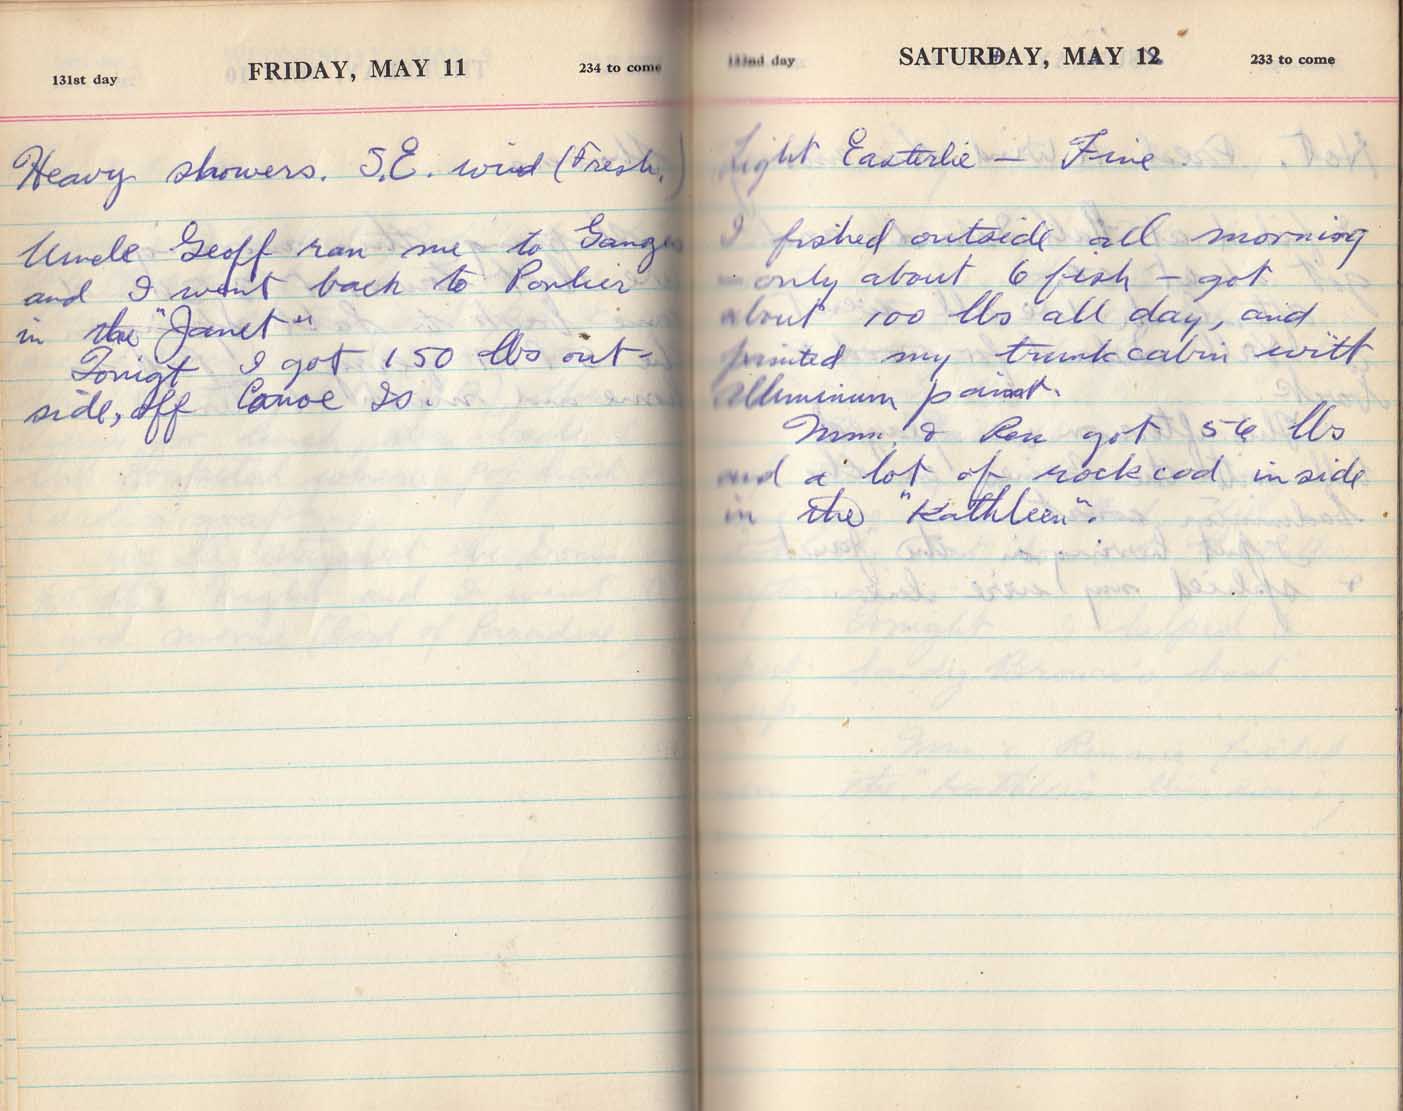 131st day FRIDAY, MAY 11 234 to come
Heavy showers. S.E. wind (Fresh.)
Uncle Geoff ran me to Ganges
and I went back to Porlier
in the "Janet"
Tonigt I got 150 lbs out-
side, off Canoe Is.
132nd day SATURDAY, MAY 12 233 to come
Light Easterlie – Fine.
I fished outside all morning
– only about 6 fish – got
about 100 lbs all day, and
painted my trunk cabin witt
alluminium paint.
Mum & Ron got 56 lbs
and a lot of rock cod inside
in the "Kathleen".